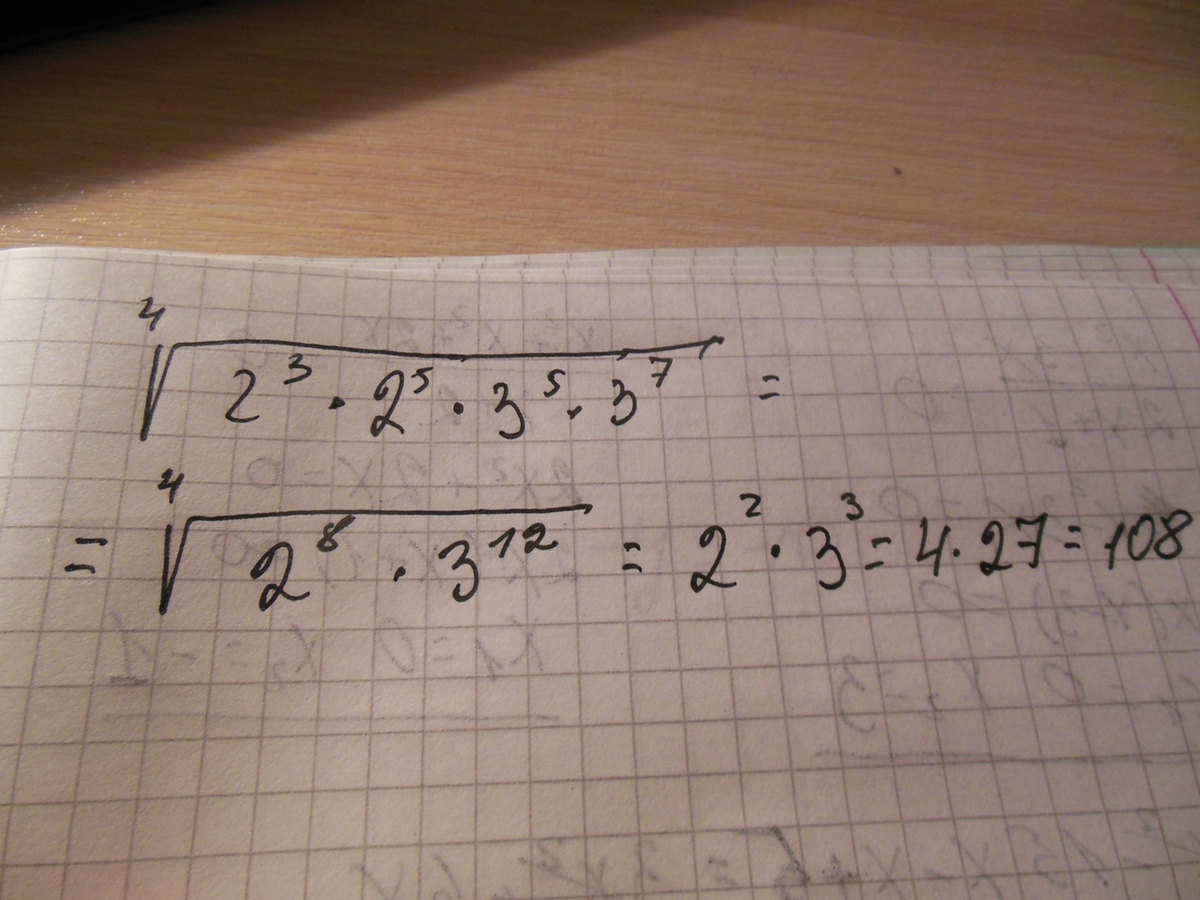 ⁴√(2³ · 2⁵ · 3⁵ · 3⁷) =
= ⁴√(2⁸ · 3¹²) = 2² · 3³ = 4 · 27 = 108